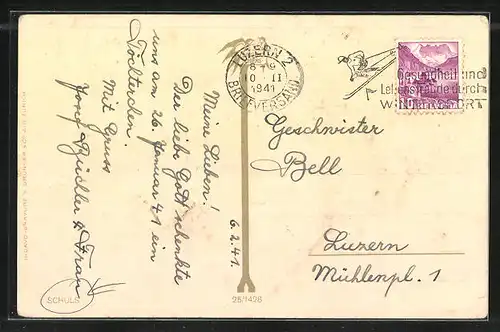 LUZERN 2
10 II
1941
BRIEFVERSAND
Gesundheit und
Lebensfreude durch
WINTERSPORT
6.2.41.
Meine Lieben!
Der liebe Gott schenkte
uns am 26. Januar 41 ein
Töchterchen.
Mit Gruss
Josef & Frau
Geschwister
Bell
Luzern
Mühlenpl. 1
SCHULS
25/1436